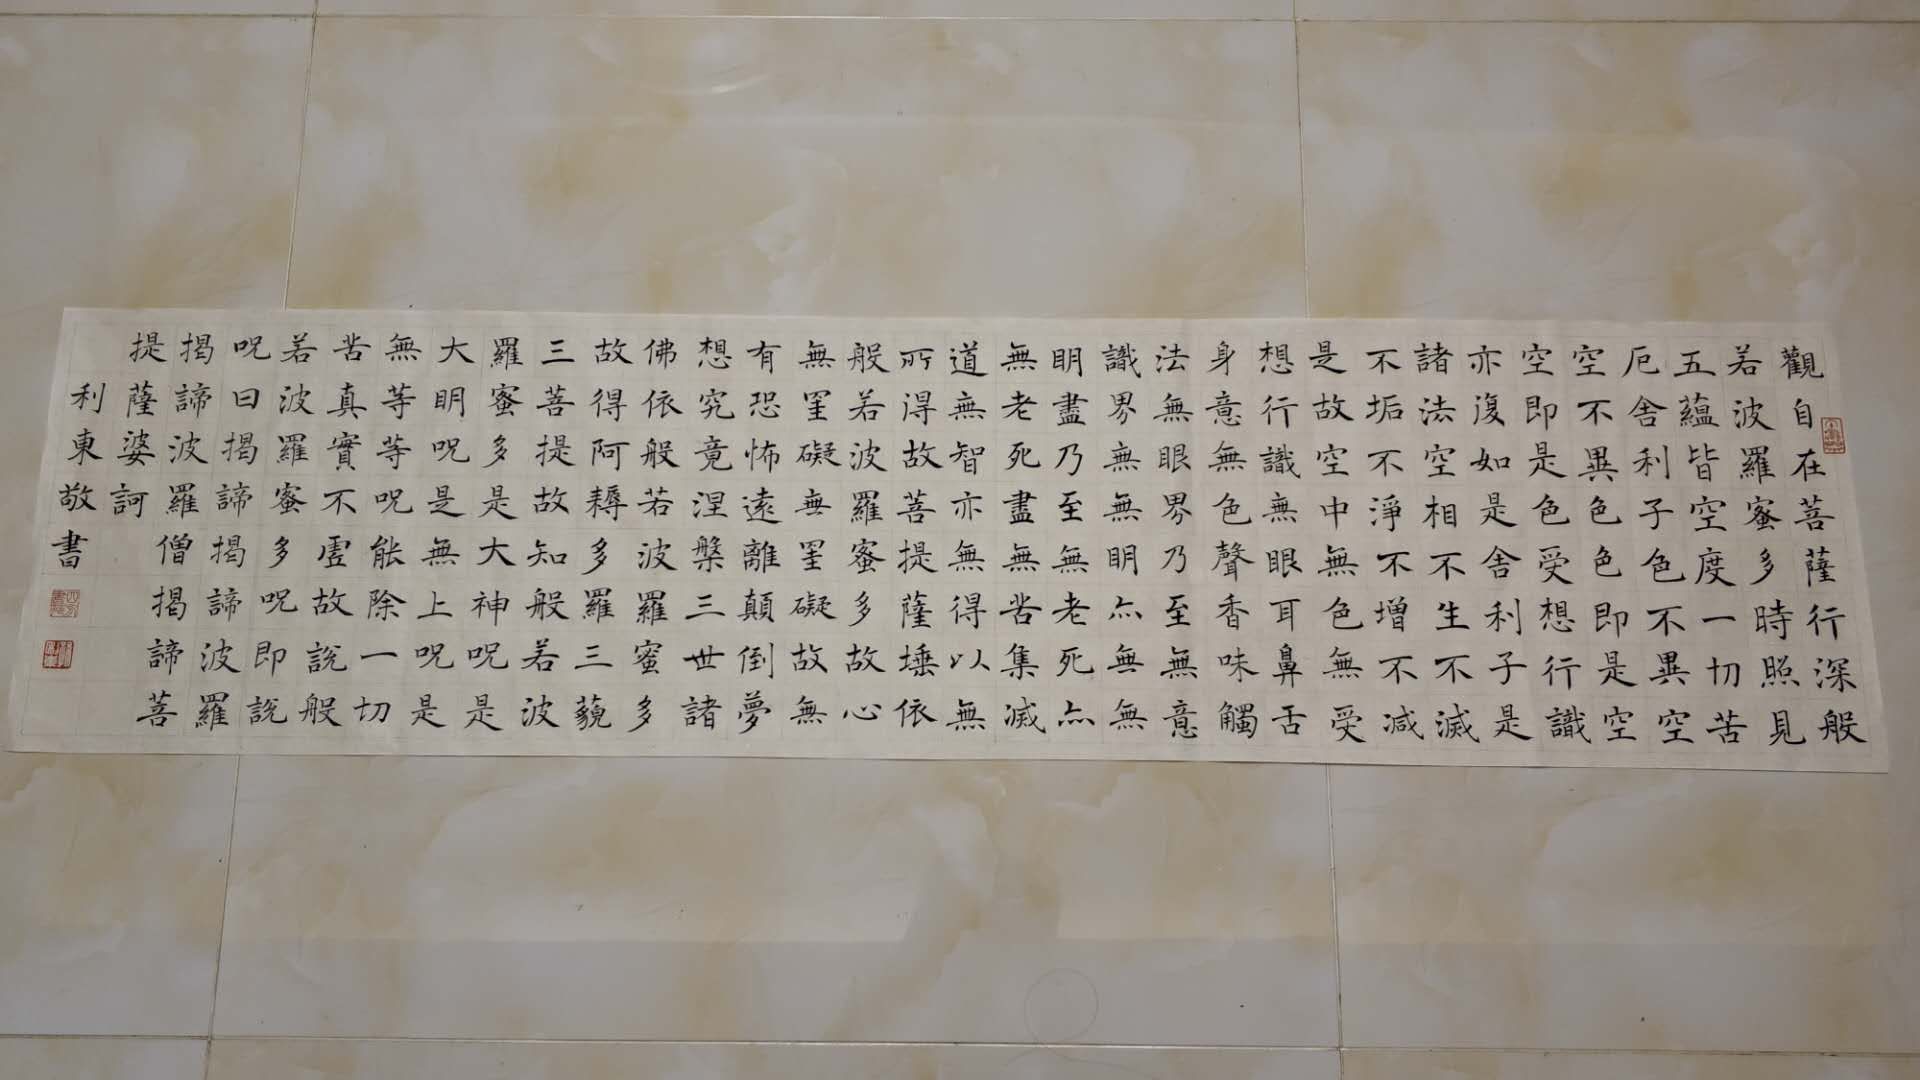 觀自在菩薩行深般
若波羅蜜多時照見
五蘊皆空度一切苦
厄舍利子色不異空
空不異色色即是空
空即是色受想行識
亦復如是舍利子是
諸法空相不生不滅
不垢不淨不增不減
是故空中無色無受
想行識無眼耳鼻舌
身意無色聲香味觸
法無眼界乃至無意
識界無無明亦無無
明盡乃至無老死亦
無老死盡無苦集滅
道無智亦無得以無
所得故菩提薩埵依
般若波羅蜜多故心
無罣礙無罣礙故無
有恐怖遠離顛倒夢
想究竟涅槃三世諸
佛依般若波羅蜜多
故得阿耨多羅三藐
三菩提故知般若波
羅蜜多是大神呪是
大明呪是無上呪是
無等等呪能除一切
苦真實不虛故說般
若波羅蜜多呪即說
呪曰揭諦揭諦波羅
揭諦波羅僧揭諦菩
提薩婆訶
利東敬書